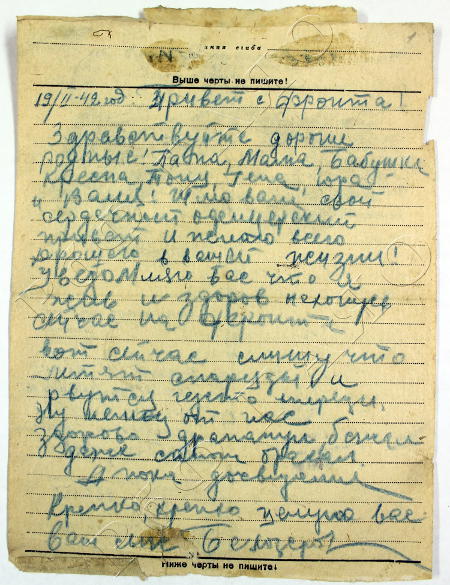 линия сгиба
Выше черты не пишите!
19/II-42 год. Привет с фронта!
Здравствуйте дорогие
родные! Папа, Мама, Бабушка
Тоня, Гена, Юра
и Валя! Шлю вам свой
сердечный
привет и желаю всего
хорошего в вашей жизни!
Уведомляю вас что я
жив и здоров нахожусь
сейчас на фронте
вот сейчас слышу что
летят снаряды и
рвутся где-то впереди.
Ну немец от нас
здорово драпанул бежал
А пока досвидания
Крепко крепко целую вас
Ваш сын
Ниже черты не пишите!